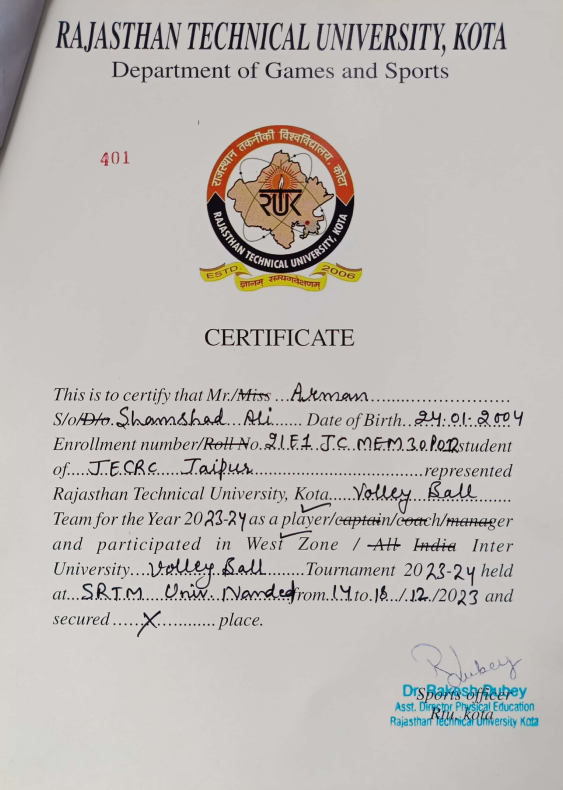 RAJASTHAN TECHNICAL UNIVERSITY, KOTA
Department of Games and Sports
401
राजस्थान तकनीकी विश्वविद्यालय, कोटा
RTU
RAJASTHAN TECHNICAL UNIVERSITY, KOTA
ESTD. 2006
ज्ञानम् सम्यगवेक्षणम्
CERTIFICATE
This is to certify that Mr./Miss Arman
S/o/D/o. Shamshad Ali Date of Birth 24.01.2004
Enrollment number/Roll No. student
of JECRC Jaipur represented
Rajasthan Technical University, Kota Volley Ball
Team for the Year 2023-24 as a player/captain/coach/manager
and participated in West Zone / All India Inter
University Volley Ball Tournament 2023-24 held
at SRTM Univ. Nanded from 14 to 18/12/2023 and
secured X place.
R Dubey
Dr. Rakesh Dubey
Sports officer
Asst. Director Physical Education
Rtu, kota
Rajasthan Technical University Kota